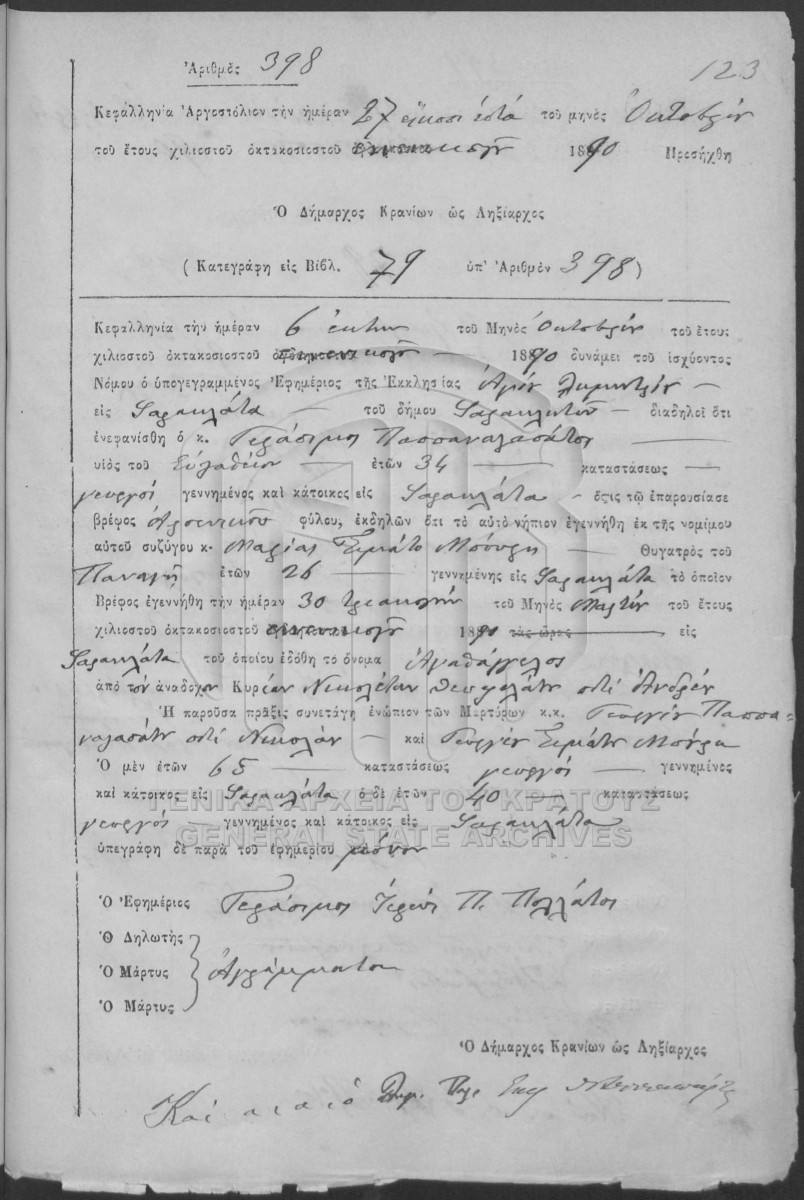 Ἀριθμὸς 398
123
Κεφαλληνία Ἀργοστόλιον τὴν ἡμέραν 27 εἴκοσι ἑπτά τοῦ μηνὸς Ὀκτωβρίου
τοῦ ἔτους χιλιοστοῦ ὀκτακοσιοστοῦ ἐνενηκοστοῦ 1890 Προσήχθη
Ὁ Δήμαρχος Κρανίων ὡς Ληξίαρχος
(Κατεγράφη εἰς Βιβλ. 79 ὑπ' Ἀριθμὸν 398)
Κεφαλληνία τὴν ἡμέραν 6 ἕκτην τοῦ Μηνὸς Ὀκτωβρίου τοῦ ἔτους
χιλιοστοῦ ὀκτακοσιοστοῦ 1890 δυνάμει τοῦ ἰσχύοντος
Νόμου ὁ ὑπογεγραμμένος Ἐφημέριος τῆς Ἐκκλησίας Ἁγίου Δημητρίου
εἰς Φαρακλάτα τοῦ δήμου διαδηλοῖ ὅτι
ἐνεφανίσθη ὁ κ. Γεράσιμος
υἱὸς τοῦ ἐτῶν 34 καταστάσεως
γεωργός γεννημένος καὶ κάτοικος εἰς Φαρακλάτα ὅςτις τῷ ἐπαρουσίασε
βρέφος ἀρσενικοῦ φύλου, ἐκδηλῶν ὅτι τὸ αὐτὸ νήπιον ἐγεννήθη ἐκ τῆς νομίμου
αὐτοῦ συζύγου κ. Μαρίας Θυγατρὸς τοῦ
Παναγῆ ἐτῶν 26 γεννημένης εἰς Φαρακλάτα τὸ ὁποῖον
Βρέφος ἐγεννήθη τὴν ἡμέραν 30 τριακοστήν τοῦ Μηνὸς Μαρτίου τοῦ ἔτους
χιλιοστοῦ ὀκτακοσιοστοῦ ἐνενηκοστοῦ 1890 τὰς ὥρας εἰς
Φαρακλάτα τοῦ ὁποίου ἐδόθη τὸ ὄνομα Ἀγαθάγγελος
ἀπὸ τὸν ἀνάδοχον Κυρίαν Νικολέταν ποτὲ Ἀνδρέου
Ἡ παροῦσα πρᾶξις συνετάγη ἐνώπιον τῶν Μαρτύρων κ.κ. Γεωργίου
ποτὲ Νικολάου καὶ Γεωργίου
Ὁ μὲν ἐτῶν 65 καταστάσεως γεωργός γεννημένος
καὶ κάτοικος εἰς Φαρακλάτα ὁ δὲ ἐτῶν 40 καταστάσεως
γεωργός γεννημένος καὶ κάτοικος εἰς Φαρακλάτα
ὑπεγράφη δὲ παρὰ τοῦ ἐφημερίου μόνον
ΓΕΝΙΚΑ ΑΡΧΕΙΑ ΤΟΥ ΚΡΑΤΟΥΣ
GENERAL STATE ARCHIVES
Ὁ Ἐφημέριος Γεράσιμος Ἱερεὺς Π.
Ὁ Δηλωτὴς
Ὁ Μάρτυς Ἀγράμματοι
Ὁ Μάρτυς
Ὁ Δήμαρχος Κρανίων ὡς Ληξίαρχος